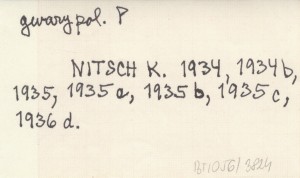 gwary pol. P
NITSCH K. 1934, 1934b,
1935, 1935a, 1935b, 1935c,
1936d.